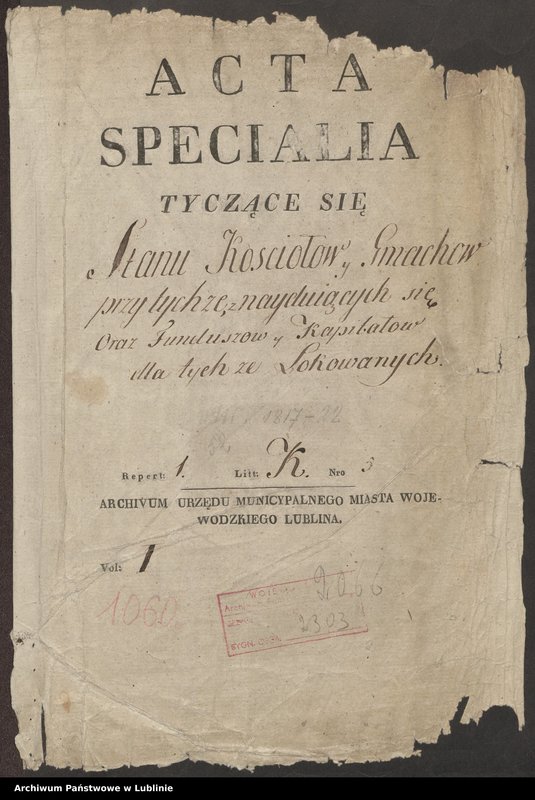 ACTA
SPECIALIA
TYCZĄCE SIĘ
Stanu Kosciołow y Gmachow
przy tychże znayduiących się
Oraz Funduszow y Kapitałow
dla tych ze Lokowanych.
1817-22
Repert: 1. Litt: K. Nro 3
ARCHIVUM URZĘDU MUNICYPALNEGO MIASTA WOJE-
WODZKIEGO LUBLINA.
Vol: 1
1060
2066
2303
SYGN.
Archiwum Państwowe w Lublinie